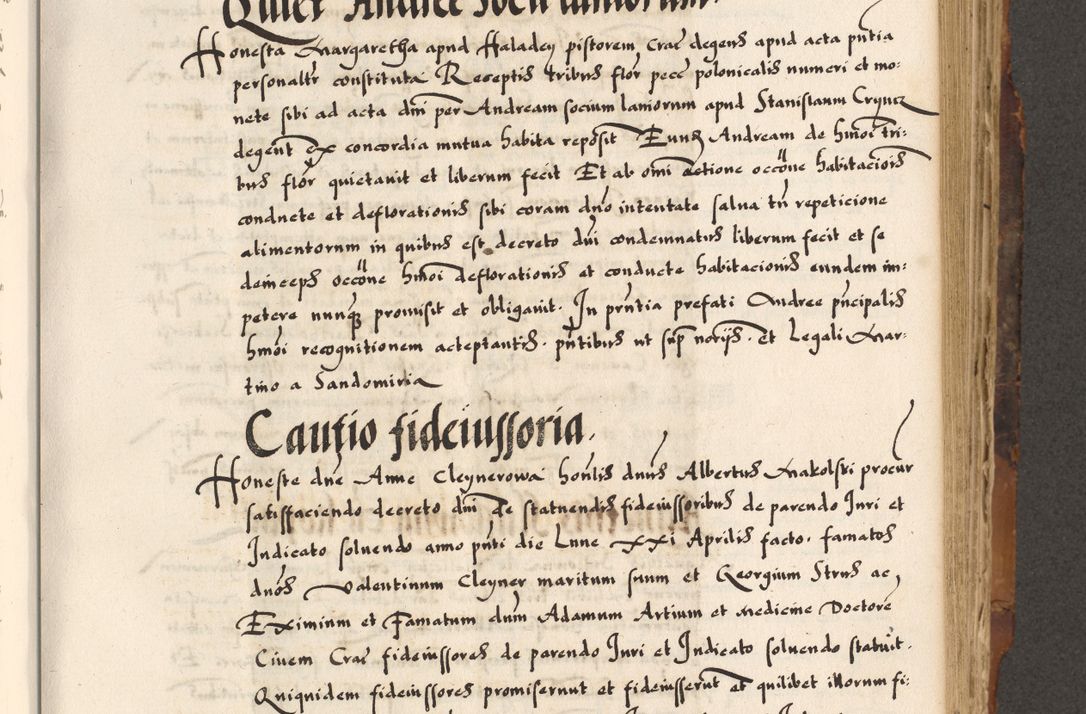 Quiet Andree Socii laniorum.
Honesta Margaretha apud Haladey pistorem, Crac degens apud acta pntia
personaltr constituta Receptis tribus flor pece polonicalis numeri et mo:
nete sibi ad acta dni per Andream socium laniorum apud Stanislaum
degent ex concordia mutua habita reposit Eund Andream de hmoi tri:
bus flor quietauit et liberum fecit Et ab omi actione occoue habitaciois
conducte et deflorationis sibi coram dno intentate salua tn repeticione
alimentorum in quibus est decreto dni condemnatus liberum fecit et se
deinceps occoue hmoi deflorationis et conducte habitacionis eundem im:
petere nunq promisit et obligauit. In pntia prefati Andree pncipalis
hmoi recognitionem acceptantis. pntibus ut sup norijs. et Legali Mar:
tino a Sandomiria
Cautio fideiussoria.
Honeste dne Anne Cleynerowa honlis dnus Albertus Makolski procur
satisfaciendo decreto dni de statuendis fideiussoribus de parendo Juri et
Judicato soluendo anno pnti die Lune xxi Aprilis facto. famatos
dnos Valentinum Cleyner maritum suum et Georgium Strus ac
Eximium et Famatum dnum Adamum Artium et Medicine Doctore
Ciuem Crac fideiussores de parendo Juri et Judicato soluendo statuit.
Quiquidem fideiussores promiserunt et fideiusserut et quilibet illorum fi: